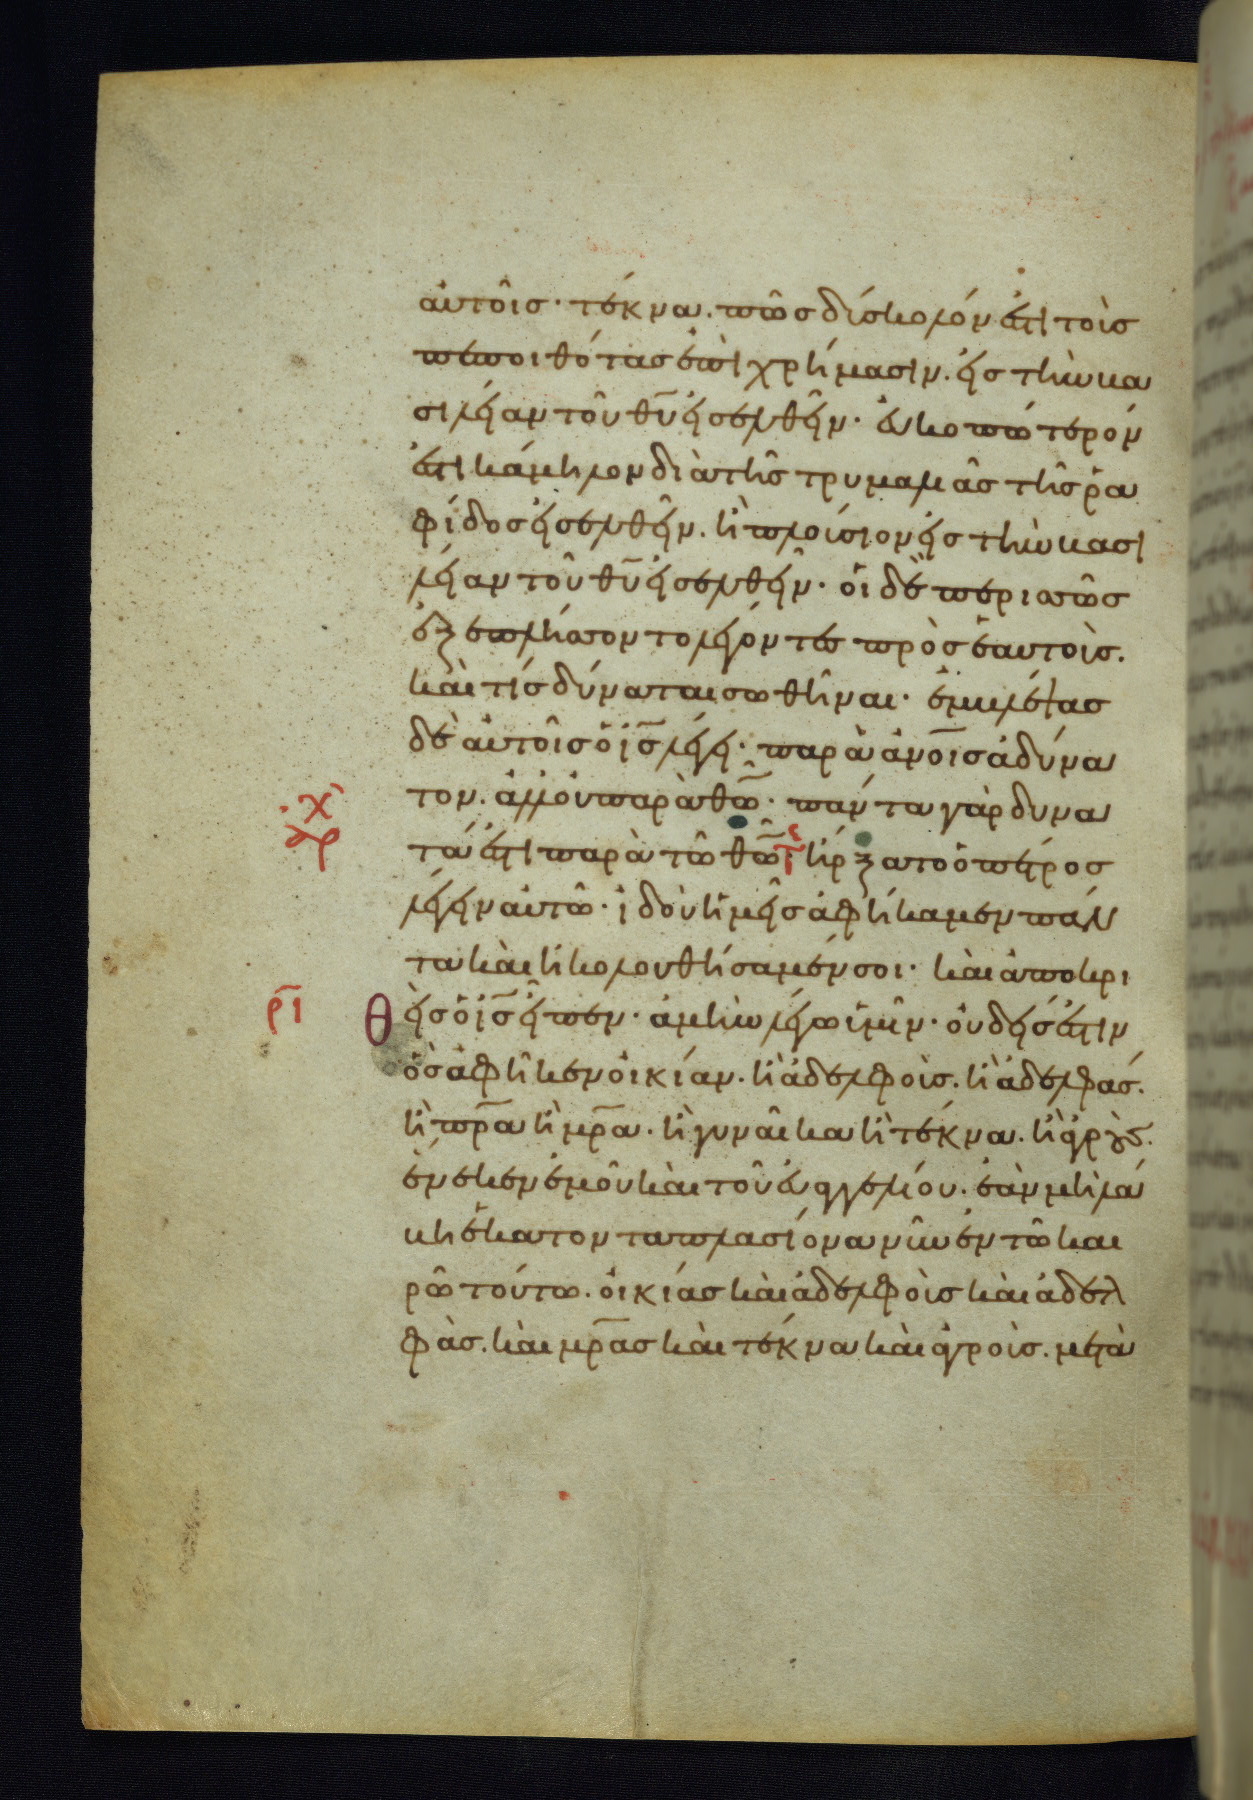 αὐτοῖσ· τέκνα. πῶσ δίσκολόν ἐστι τοὶσ
πεποιθότασ ἐπὶ χρήμασιν. εἰσ τὴν βα
σιλείαν τοῦ θ̅υ̅ εἰσελθεῖν· εὐκοπώτερόν
ἐστι κάμηλον διὰ τῆσ τρυμαλιᾶσ τῆσ ῥα
φίδοσ εἰσελθεῖν. ἢ πλοίσιον εἰσ τὴν βασι
λείαν τοῦ θ̅υ̅ εἰσελθεῖν· οἱ δὲ περισσῶσ
ἐξεπλήσσοντο λέγοντεσ πρὸσ ἑαυτοὶσ.
καὶ τίσ δύναται σωθῆναι· ἐμβλέψασ
δὲ αὐτοῖσ ὁ ι̅σ̅ λέγει· παρὰ α̅ν̅ο̅ισ ἀδύνα
τον. ἀλλ' οὐ παρὰ θ̅ω̅· πάντα γὰρ δυνα
τά ἐστι παρὰ τῶ θ̅ω̅· ἤρξατο ὁ πέτροσ
λέγειν αὐτῶ· ἰδοὺ ἡμεῖσ ἀφήκαμεν πάν
τα καὶ ἠκολουθήσαμέν σοι· καὶ ἀποκρι
ρ̅ι̅ θεὶσ ὁ ι̅σ̅ εἶπεν· ἀμὴν λέγω ἡμῖν· οὐδείσ ἐστιν
ὃσ ἀφῆκεν οἰκίαν. ἢ ἀδελφοὶσ. ἢ ἀδελφάσ.
ἢ π̅ρ̅α ἢ μ̅ρ̅α. ἢ γυναῖκα ἢ τέκνα. ἢ ἀγροὺσ.
ἕνεκεν ἐμοῦ καὶ τοῦ εὐαγγελίου. ἐὰν μὴ λά
βη ἑκατονταπλασίονα νῦν ἐν τῶ και
ρῶ τούτω. οἰκίασ καὶ ἀδελφοὶσ καὶ ἀδελ
φὰσ. καὶ μ̅ρ̅ασ καὶ τέκνα καὶ ἀγροὶσ. μετὰ